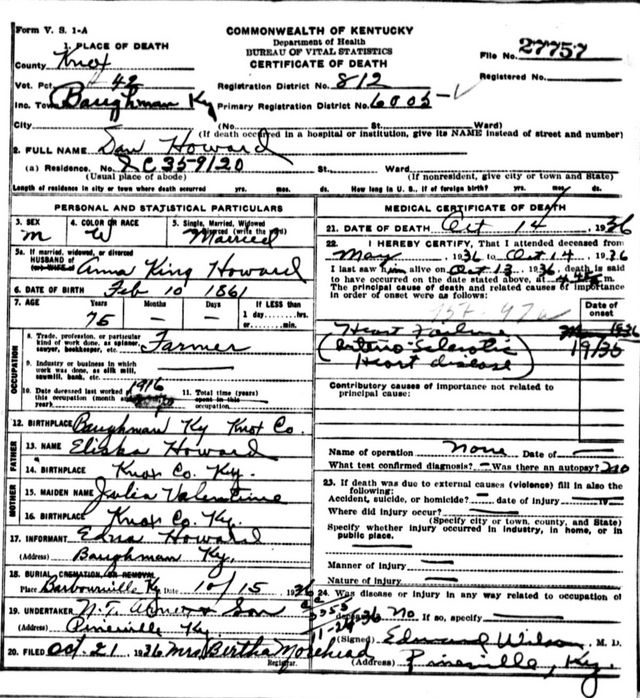 Form V. S. 1-A
COMMONWEALTH OF KENTUCKY
Department of Health
BUREAU OF VITAL STATISTICS
CERTIFICATE OF DEATH
File No. 27757
Registered No.
1. PLACE OF DEATH
County Knox
Vot. Pct 42
Registration District No. 812
Inc. Town Baughman Ky
Primary Registration District No. 6005
City (No. St. Ward)
(If death occurred in a hospital or institution, give its NAME instead of street and number)
2. FULL NAME Dan Howard
(a) Residence. No. St. Ward
(Usual place of abode) (If nonresident, give city or town and State)
Length of residence in city or town where death occurred yrs. mos. ds. How long in U. S., if of foreign birth? yrs. mos. ds.
PERSONAL AND STATISTICAL PARTICULARS
3. SEX M
4. COLOR OR RACE W
5. Single, Married, Widowed
Divorced (write the word)
Married
5a. If married, widowed, or divorced
HUSBAND of
(or) WIFE of Anna King Howard
6. DATE OF BIRTH Feb 10 1861
7. AGE Years Months Days If LESS than
75 — — 1 day........hrs.
or........min.
OCCUPATION
8. Trade, profession, or particular
kind of work done, as spinner,
sawyer, bookkeeper, etc. Farmer
9. Industry or business in which
work was done, as silk mill,
sawmill, bank, etc.
10. Date deceased last worked at
this occupation (month and
year) 1916
11. Total time (years)
spent in this
occupation
12. BIRTHPLACE Baughman Ky Knox Co.
FATHER
13. NAME Elisha Howard
14. BIRTHPLACE Knox Co. Ky.
MOTHER
15. MAIDEN NAME Julia Valentine
16. BIRTHPLACE Knox Co. Ky.
17. INFORMANT Edna Howard
(Address) Baughman Ky.
18. BURIAL, CREMATION, OR REMOVAL
Place Barbourville Ky Date 10/15 1936
19. UNDERTAKER N.T. & Son
(Address) Pineville Ky
20. FILED Oct. 21, 1936 Mrs Bertha Morehead
Registrar.
MEDICAL CERTIFICATE OF DEATH
21. DATE OF DEATH Oct 14, 1936
22. I HEREBY CERTIFY, That I attended deceased from
May, 1936 to Oct 14, 1936
I last saw him alive on Oct 13, 1936, death is said
to have occurred on the date stated above, at m.
The principal cause of death and related causes of importance
in order of onset were as follows:
Date of
onset
Heart Failure 1936
(Arterio-Sclerotic 1935
Heart disease)
Contributory causes of importance not related to
principal cause:
Name of operation None Date of —
What test confirmed diagnosis? — Was there an autopsy? no
23. If death was due to external causes (violence) fill in also the
following:
Accident, suicide, or homicide? — date of injury —
Where did injury occur? —
(Specify city or town, county, and State)
Specify whether injury occurred in industry, in home, or in
public place.
Manner of injury —
Nature of injury —
24. Was disease or injury in any way related to occupation of
deceased? No If so, specify —
(Signed) Edmund Wilson, M. D.
(Address) Pineville, Ky.